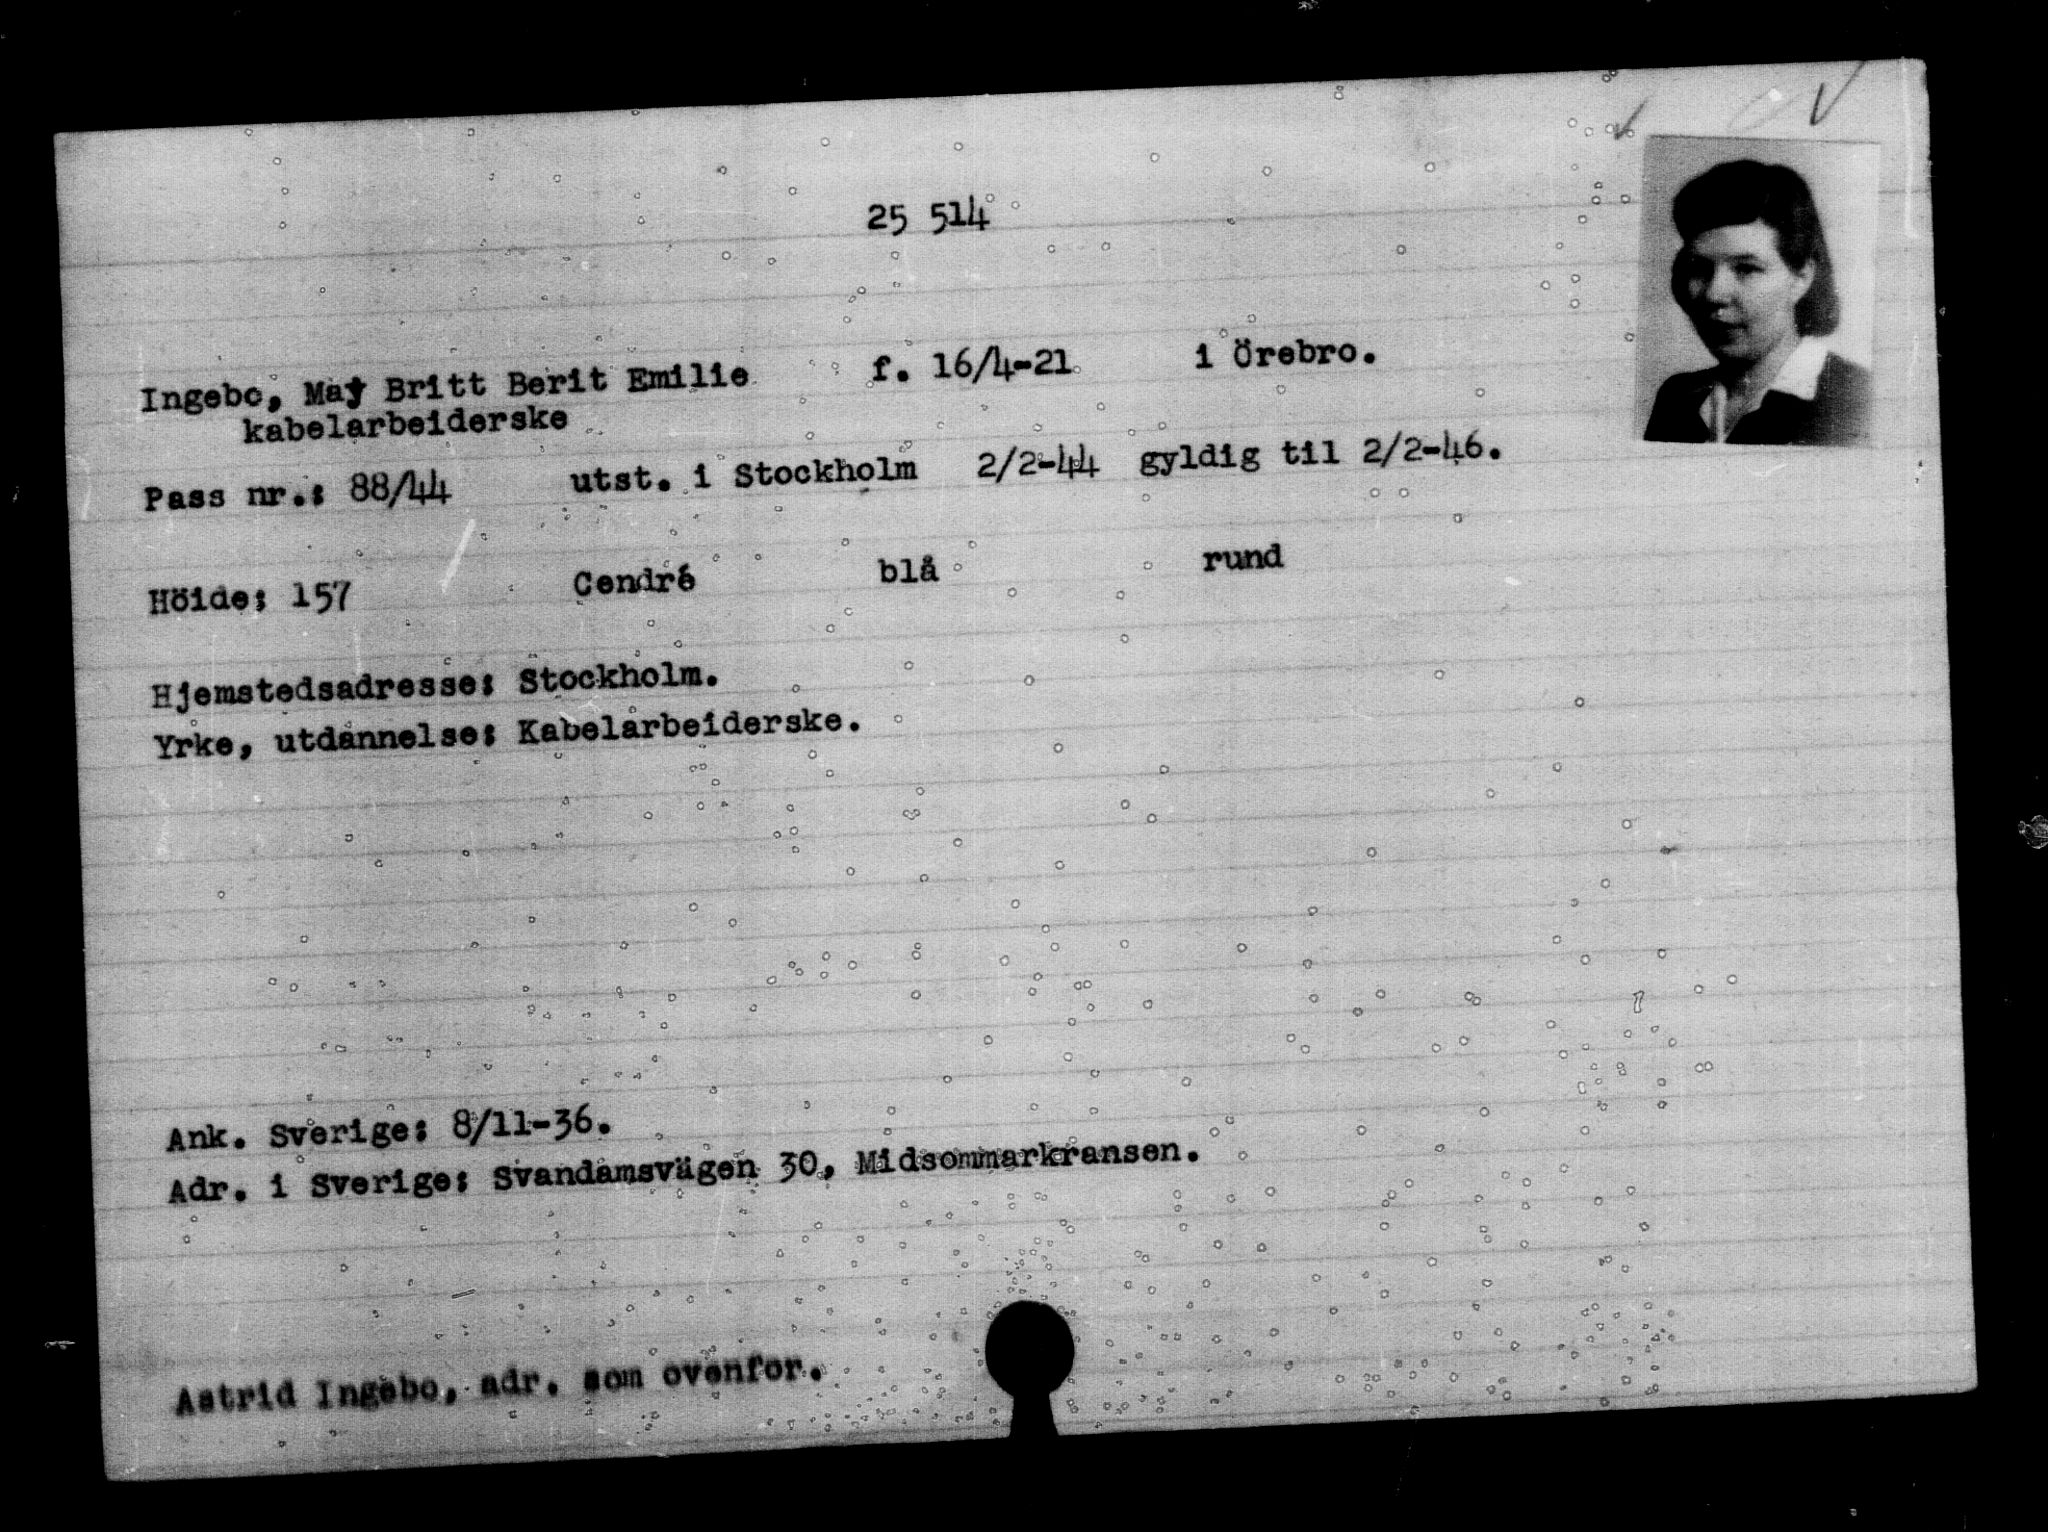 25 514
Ingebo, May Britt Berit Emilie f. 16/4-21 i Örebro.
kabelarbeiderske
Pass nr.: 88/44 utst. i Stockholm 2/2-44 gyldig til 2/2-46.
Höide: 157 Cendré blå rund
Hjemstedsadresse: Stockholm.
Yrke, utdannelse: Kabelarbeiderske.
Ank. Sverige: 8/11-36.
Adr. i Sverige: Svandamsvägen 30, Midsommarkransen.
Astrid Ingebo, adr. som ovenfor.